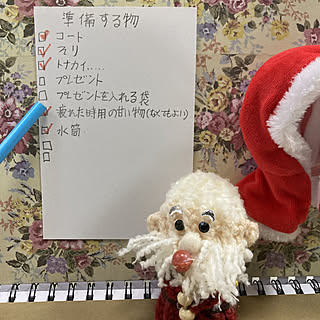 準備する物
コート
ソリ
トナカイ.....
プレゼント
プレゼントを入れる袋
疲れた時用の甘い物(なくてもよい)
水筒